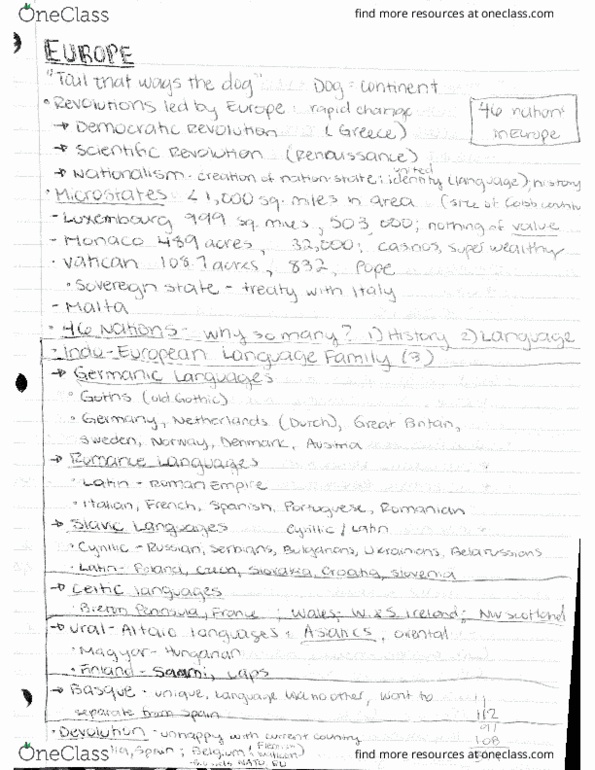 OneClass
find more resources at oneclass.com
EUROPE
"Tail that wags the dog" Dog = continent
• Revolutions led by Europe: rapid change
46 nations in Europe
→ Democratic Revolution (Greece)
→ Scientific Revolution (Renaissance)
→ Nationalism - creation of nation-state: united identity (language), history
• Microstates < 1,000 sq. miles in area (size of Cobb County
- Luxembourg 999 sq. miles, 503,000; nothing of value
- Monaco 489 acres, 32,000; casinos, super wealthy
• Vatican 108.7 acres, 832, Pope
• Sovereign state - treaty with Italy
- Malta
• 46 Nations - why so many? 1) History 2) Language
• Indo-European Language Family (3)
→ Germanic Languages
• Goths (old Gothic)
• Germany, Netherlands (Dutch), Great Britain,
Sweden, Norway, Denmark, Austria
→ Romance Languages
• Latin - Roman Empire
• Italian, French, Spanish, Portuguese, Romanian
→ Slavic Languages Cyrillic / Latin
• Cyrillic - Russian, Serbians, Bulgarians, Ukrainians, Belarussians
• Latin - Poland, Czech, Slovakia, Croatia, Slovenia
→ Celtic languages
• Breton Peninsula, France ; Wales; W. & S. Ireland; NW Scotland
→ Ural-Altaic languages: Asiatics, oriental
• Magyar - Hungarian
• Finland - Saami, Laps
→ Basque • unique, language like no other, want to
separate from Spain
112
91
108
• Devolution - unhappy with current country
lia, Spain ; Belgium (Flemish
OneClass
find more resources at oneclass.com